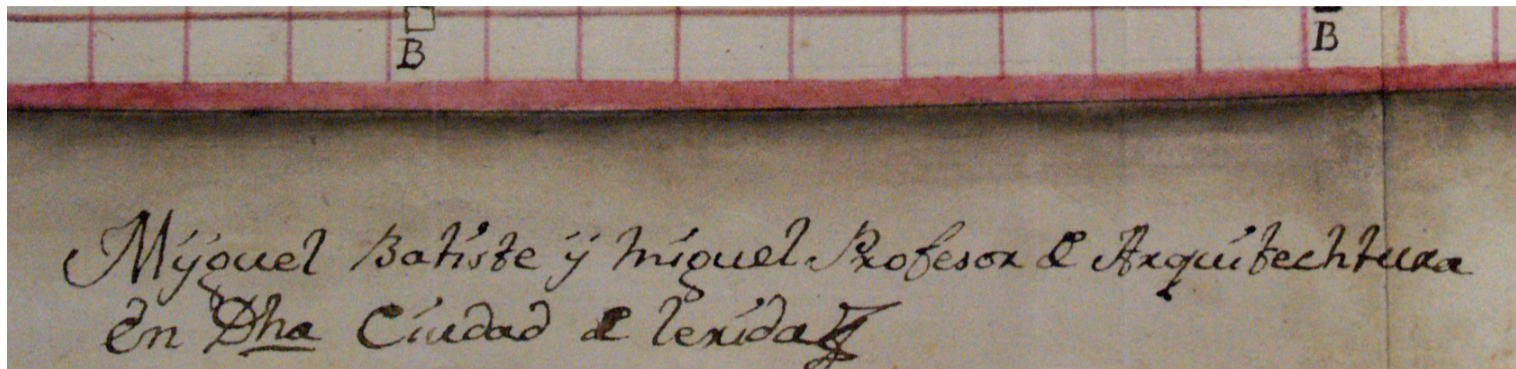 B B
Miÿguel Batiste ÿ Miguel Profesor de Arquitechtura
en Dha Ciudad de lerida